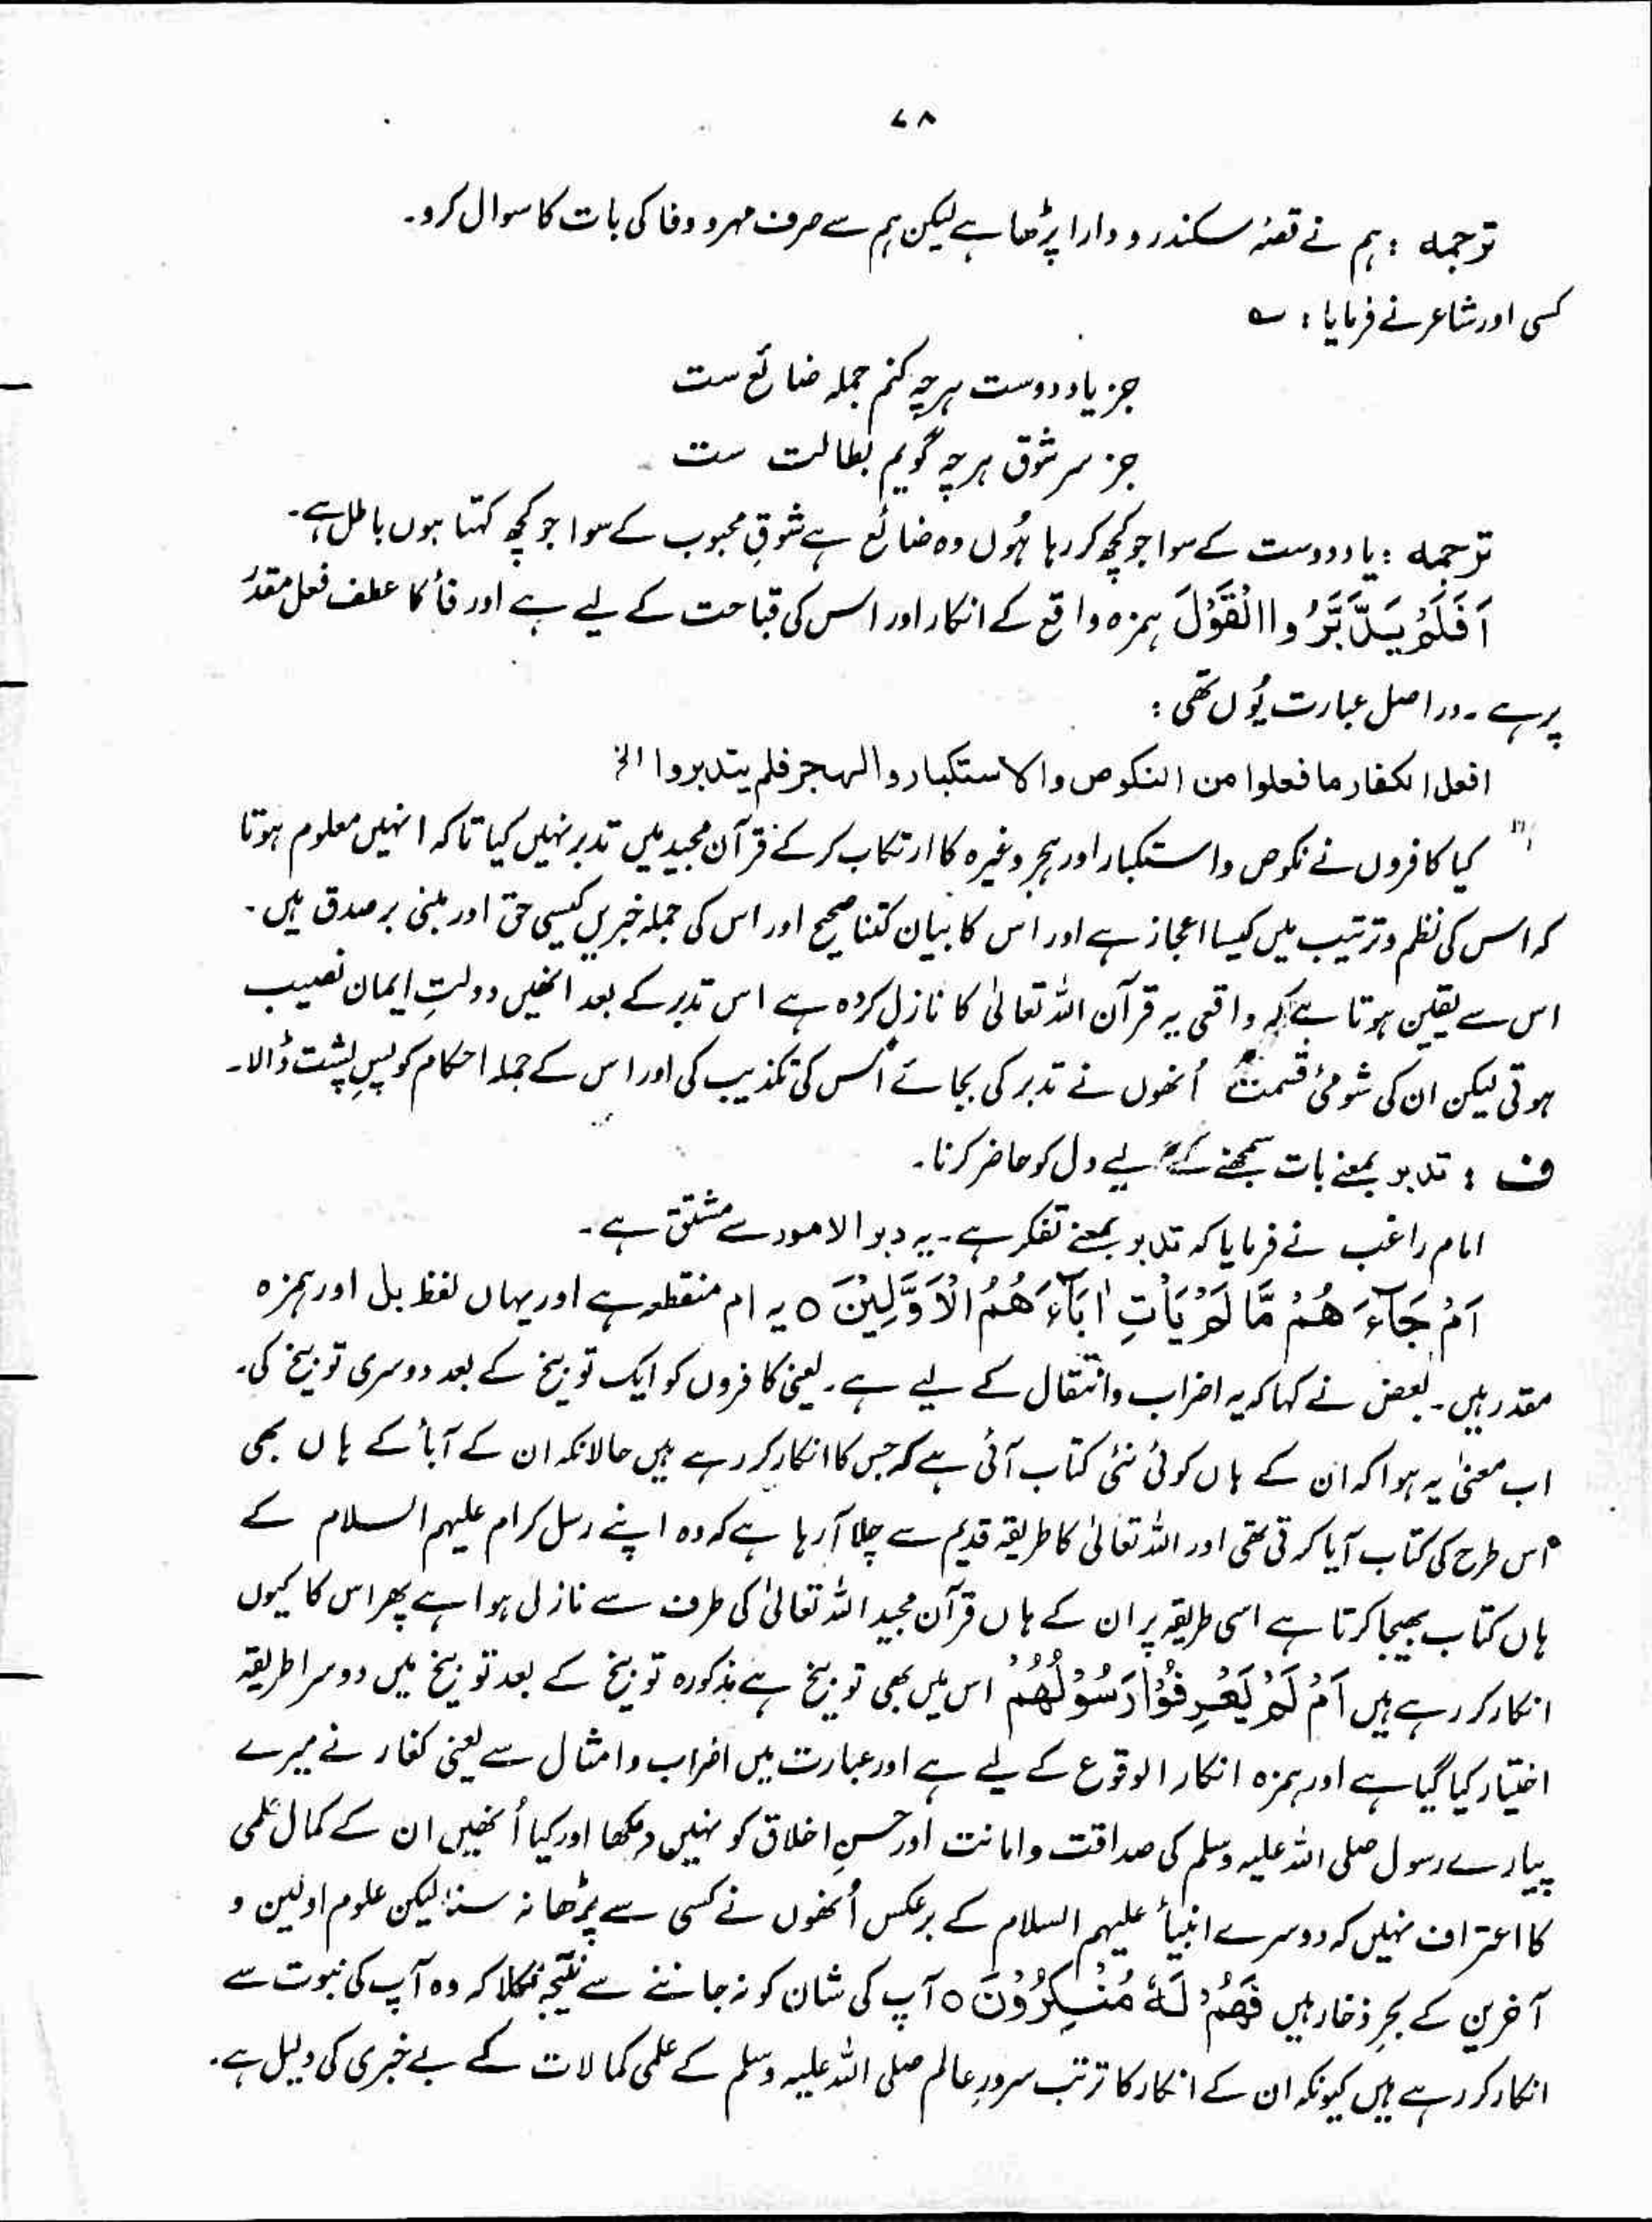 ۷۸
ترجمہ : ہم نے قصہ سکندر و دارا پڑھا ہے لیکن ہم سے صرف مہر و وفا کی بات کا سوال کرو۔
کسی اور شاعر نے فرمایا : ؎
جز یاد دوست ہرچہ کنم جملہ ضائع ست
جز سر شوق ہرچہ گویم بطالت ست
ترجمہ : یاد دوست کے سوا جو کچھ کر رہا ہُوں وہ ضائع ہے شوقِ محبوب کے سوا جو کچھ کہتا ہوں باطل ہے۔
اَفَلَمْ يَدَّبَّرُوا الْقَوْلَ ہمزہ واقع کے انکار اور اس کی قباحت کے لیے ہے اور فأ کا عطف فعل مقدر
پر ہے ۔ دراصل عبارت یُوں تھی :
افعل الکفار ما فعلوا من النکوص والاستکبار والہجر فلم یتدبروا الخ
کیا کافروں نے نکوص و استکبار اور ہجر وغیرہ کا ارتکاب کر کے قرآن مجید میں تدبر نہیں کیا تاکہ انہیں معلوم ہوتا
کہ اس کی نظم و ترتیب میں کیسا اعجاز ہے اور اس کا بیان کتنا صحیح اور اس کی جملہ خبریں کیسی حق اور مبنی بر صدق ہیں ۔
اس سے یقین ہوتا ہے کہ واقعی یہ قرآن اللہ تعالیٰ کا نازل کردہ ہے اس تدبر کے بعد انھیں دولتِ ایمان نصیب
ہوتی لیکن ان کی شومیٔ قسمت اُنھوں نے تدبر کی بجائے اُس کی تکذیب کی اور اس کے جملہ احکام کو پسِ پشت ڈالا۔
ف : تدبر بمعنے بات سمجھنے کے لیے دل کو حاضر کرنا۔
امام راغب نے فرمایا کہ تدبر بمعنے تفکر ہے ۔ یہ دبر الامور سے مشتق ہے ۔
اَمْ جَآءَهُمْ مَّا لَمْ يَاْتِ اٰبَآءَهُمُ الْاَوَّلِيْنَ ○ یہ ام منقطعہ ہے اور یہاں لفظ بل اور ہمزہ
مقدر ہیں ۔ بعض نے کہا کہ یہ اضراب و انتقال کے لیے ہے ۔ یعنی کافروں کو ایک توبیخ کے بعد دوسری توبیخ کی۔
اب معنیٰ یہ ہوا کہ ان کے ہاں کوئی نئی کتاب آئی ہے کہ جس کا انکار کر رہے ہیں حالانکہ ان کے آبأ کے ہاں بھی
اُس طرح کی کتاب آیا کرتی تھی اور اللہ تعالیٰ کا طریقہ قدیم سے چلا آرہا ہے کہ وہ اپنے رسل کرام علیہم السلام کے
ہاں کتاب بھیجا کرتا ہے اسی طریقہ پر ان کے ہاں قرآن مجید اللہ تعالیٰ کی طرف سے نازل ہوا ہے پھر اس کا کیوں
انکار کر رہے ہیں اَمْ لَمْ يَعْرِفُوْا رَسُوْلَهُمْ اس میں بھی توبیخ ہے مذکورہ توبیخ کے بعد توبیخ میں دوسرا طریقہ
اختیار کیا گیا ہے اور ہمزہ انکار الوقوع کے لیے ہے اور عبارت میں اضراب و امثال سے یعنی کفار نے میرے
پیارے رسول صلی اللہ علیہ وسلم کی صداقت و امانت اور حسنِ اخلاق کو نہیں دیکھا اور کیا اُنھیں ان کے کمال علمی
کا اعتراف نہیں کہ دوسرے انبیأ علیہم السلام کے برعکس اُنھوں نے کسی سے پڑھا نہ سنا لیکن علوم اولین و
آخرین کے بحرِ ذخار ہیں فَهُمْ لَهٗ مُنْكِرُوْنَ ○ آپ کی شان کو نہ جاننے سے نتیجہ نکلا کہ وہ آپ کی نبوت سے
انکار کر رہے ہیں کیونکہ ان کے انکار کا ترتب سرورِ عالم صلی اللہ علیہ وسلم کے علمی کمالات کے بے خبری کی دلیل ہے۔